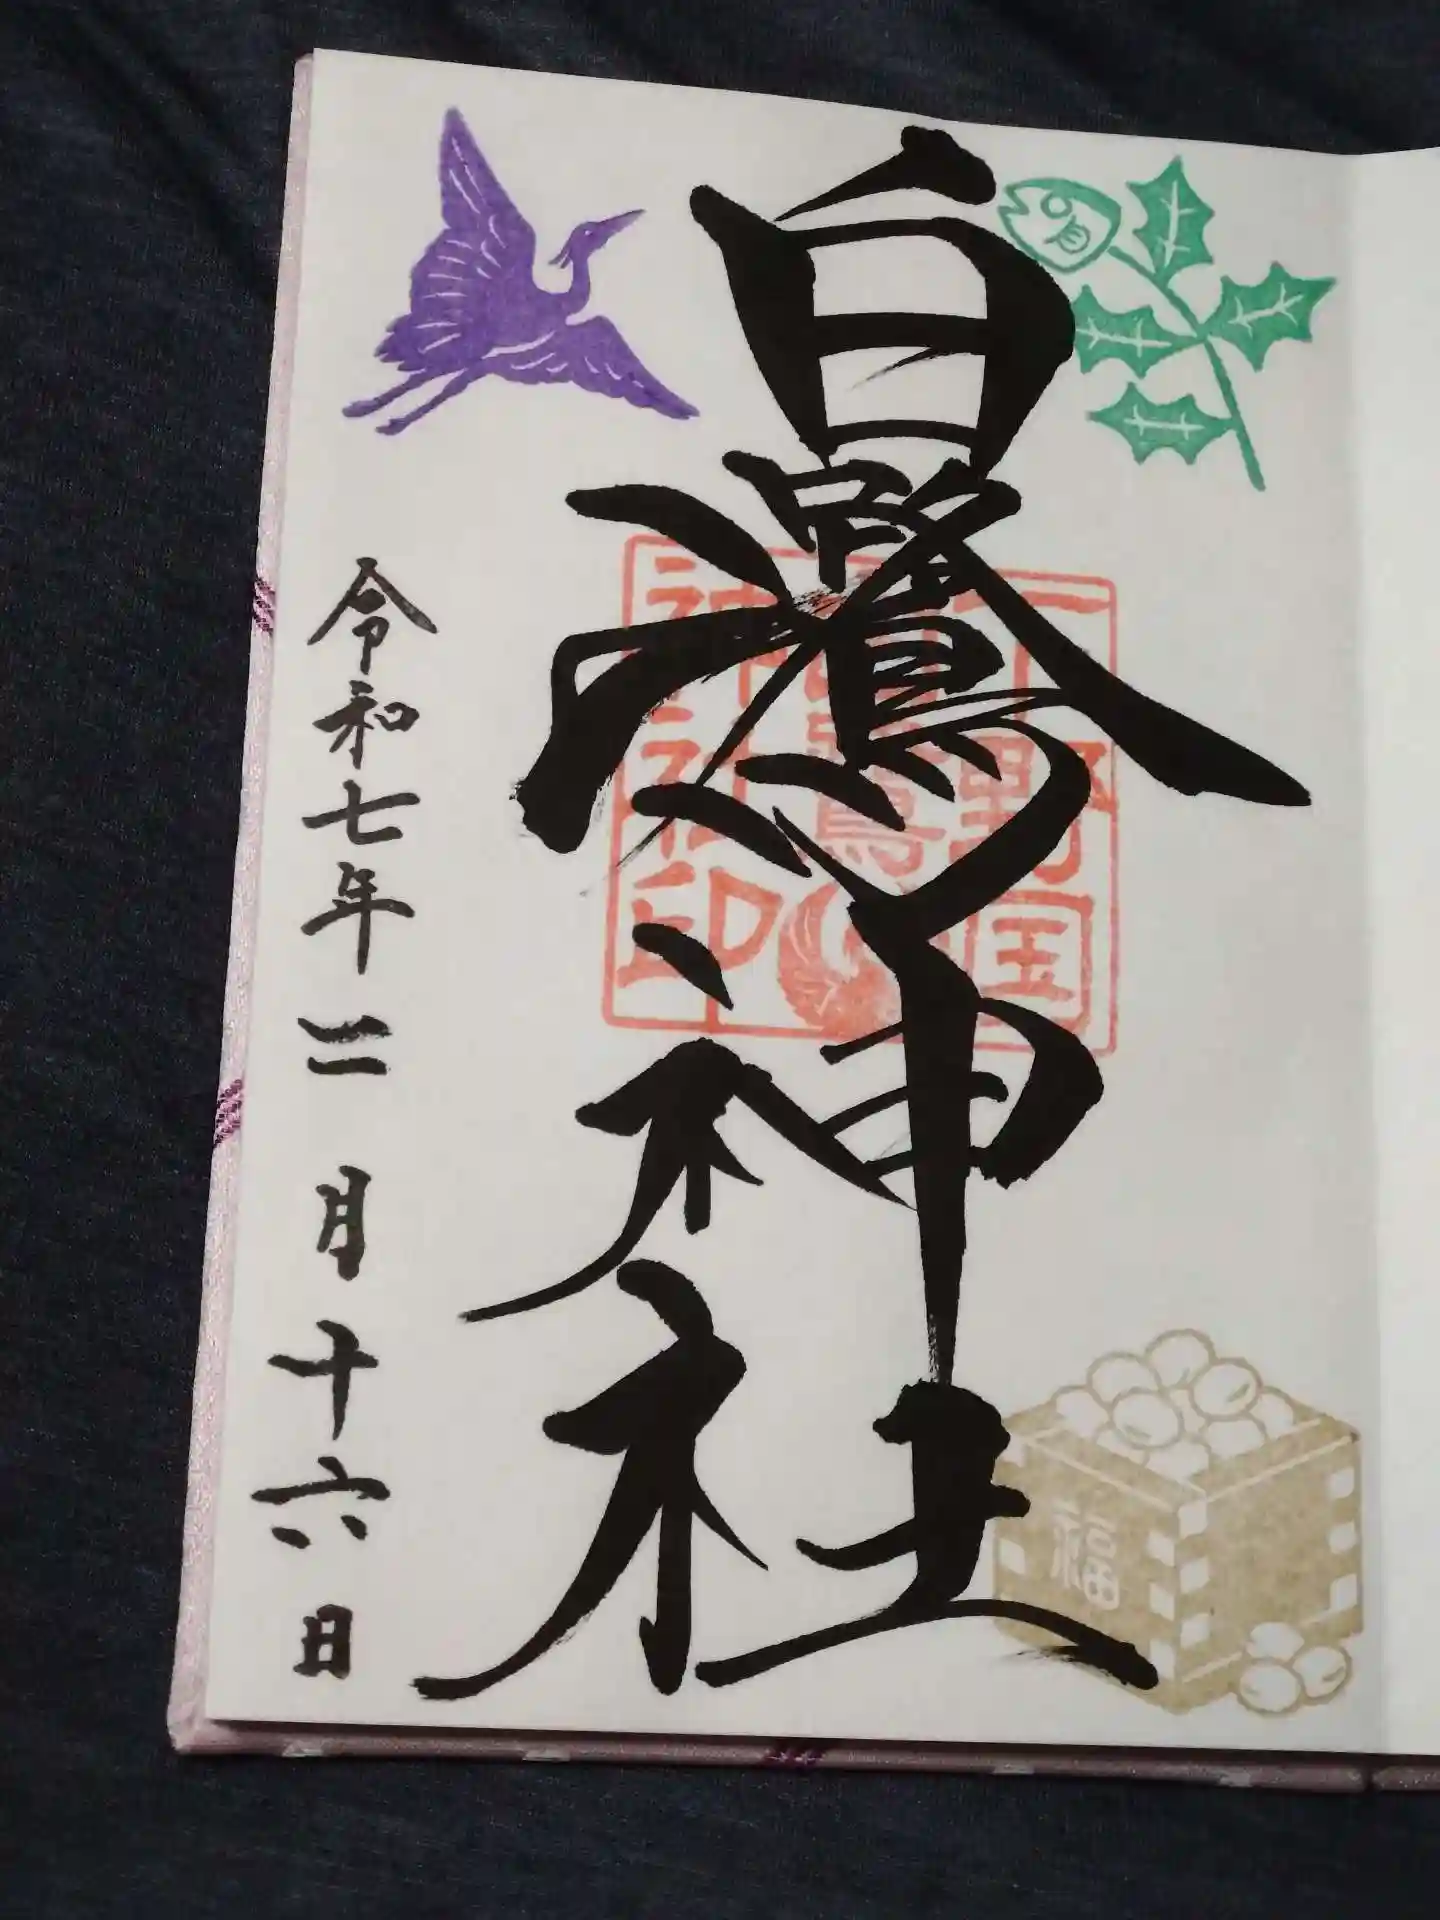 白鷺神社
下野国
白鷺
神社印
令和七年二月十六日
福